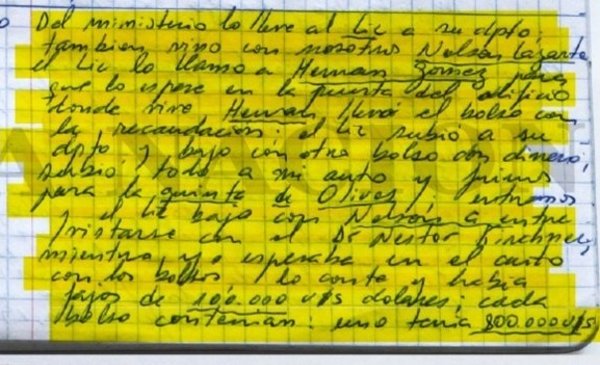 Del ministerio lo lleve al Lic a su dpto,
tambien vino con nosotros Nelson Lazarte
el Lic lo llamo a Hernan Gomez para
que lo espere en la puerta del edificio
donde vive Hernan llevó el bolso con
la recaudación; el Lic subio a su
dpto y bajo con otro bolso con dinero,
subió todo a mi auto y fuimos
para la quinta de Olivos; entramos
y el Lic bajo con Nelson a entre
vistarse con el Dr Nestor Kirchner,
mientras yo esperaba en el auto
con los bolsos, lo conte y habia
fajos de 100.000 u/s dolares; cada
bolso contenian: uno tenia 800.000 u/s
LA NACION